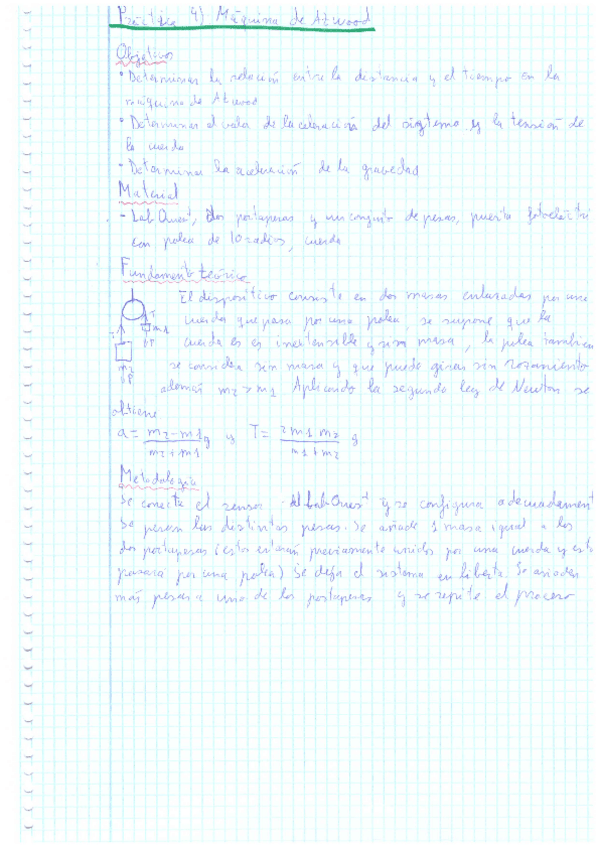 Práctica 4) Máquina de Atwood
Objetivos
• Determinar la relación entre la distancia y el tiempo en la
máquina de Atwood
• Determinar el valor de la celeración del sistema y la tensión de
la cuerda
• Determinar la aceleración de la gravedad
Material
- LabQuest, dos portapesas y un conjunto de pesas, puerta fotoeléctri
con polea de 10 radios, cuerda
Fundamento teórico
El dispositivo consiste en dos masas enlazadas por una
cuerda que pasa por una polea, se supone que la
cuerda es es inextensible y sin masa, la polea tambien
se considera sin masa y que puede girar sin rozamiento
además m2 > m1 Aplicando la segunda ley de Newton se
obtiene
T T m1 ↓P
m2 ↓P
a = (m2 - m1)/(m2 + m1) g y T = (2 m1 m2)/(m1 + m2) g
Metodología
Se conecta el sensor del LabQuest y se configura adecuadament
Se pesan las distintas pesas. Se añade 1 masa igual a los
dos portapesas (estos estarán previamente unidos por una cuerda y esta
pasará por una polea) se deja el sistema en liberta. Se añaden
más pesas a uno de los portapesas y se repite el proceso